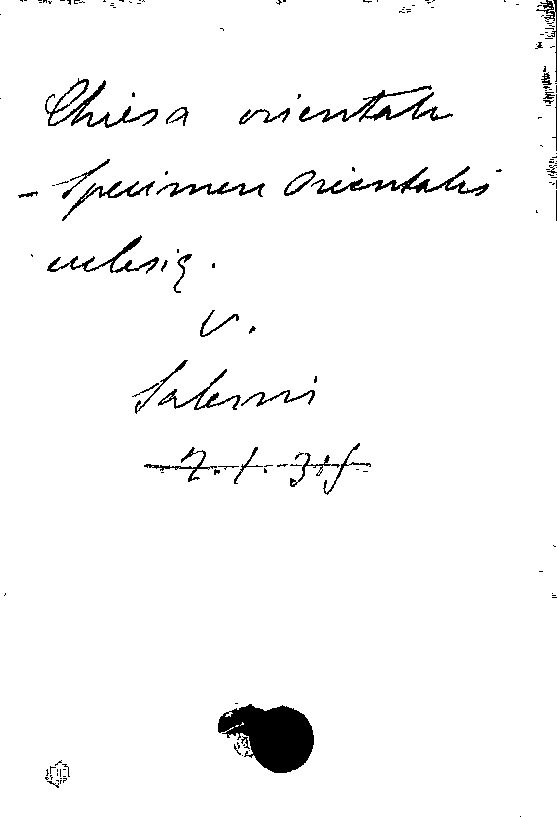 Chiesa orientale
- Specimen Orientalis
ecclesię.
v.
Salerni